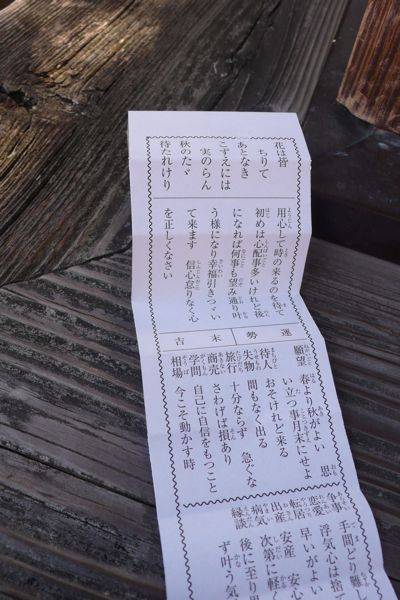 花は皆
ちりて
あとなき
こずえには
実のらん
秋のたゞ
待たれけり
用心して時の来るのを待て
初めは心配事多いけれど後
になれば何事も望み通り叶
う様になり幸福引きつゞい
て来ます 信心怠りなく心
を正しくなさい
運勢 末吉
願望 春より秋がよい 思
い立つ事月末にせよ
待人 おそけれど来る
失物 間もなく出る
旅行 十分ならず 急ぐな
商売 さわげば損あり
学問 自己に自信をもつこと
相場 今こそ動かす時
争事 手間どり難
恋愛 浮気心は捨
転居 早いがよい
出産 安産 安
病気 次第に軽
縁談 後に至り
ず叶う気